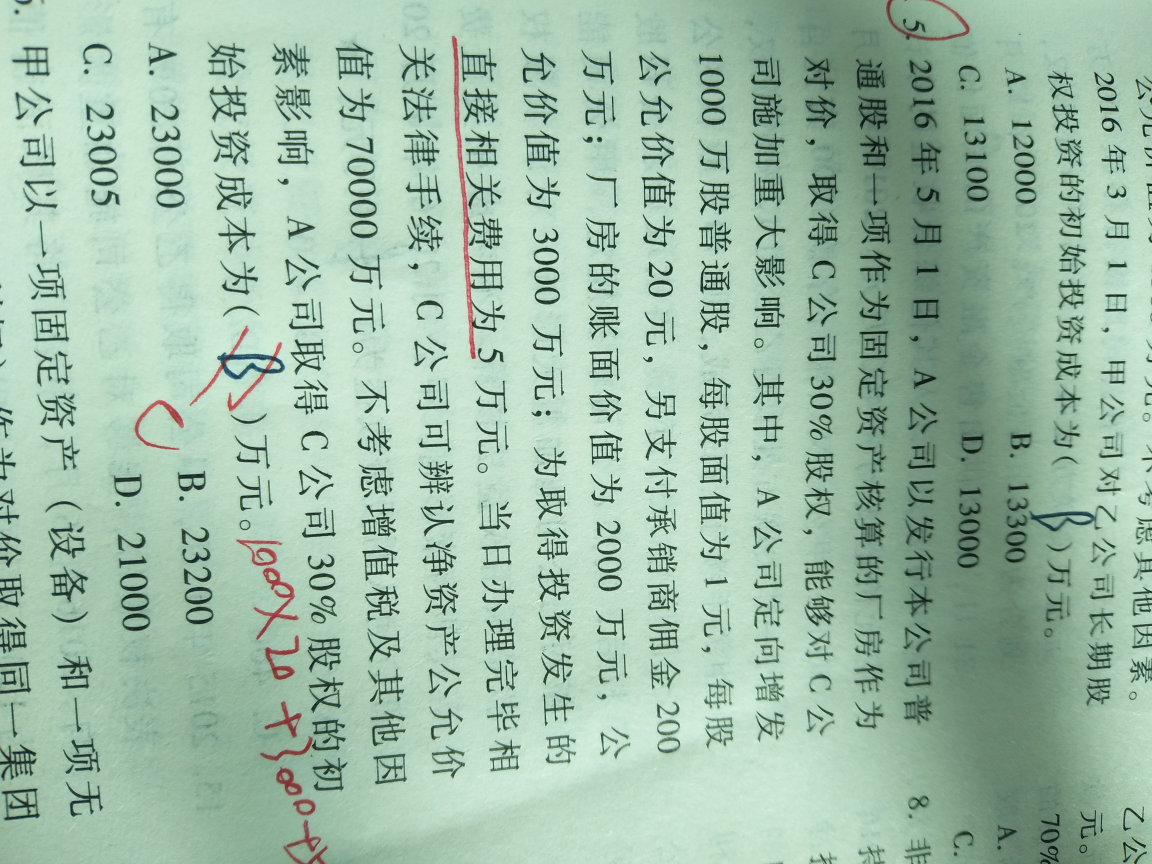 2016年3月1日,甲公司对乙公司长期股
权投资的初始投资成本为( B )万元。
A. 12000 B. 13300
C. 13100 D. 13000
5. 2016年5月1日,A公司以发行本公司普
通股和一项作为固定资产核算的厂房作为
对价,取得C公司30%股权,能够对C公
司施加重大影响。其中,A公司定向增发
1000万股普通股,每股面值为1元,每股
公允价值为20元,另支付承销商佣金200
万元;厂房的账面价值为2000万元,公
允价值为3000万元;为取得投资发生的
直接相关费用为5万元。当日办理完毕相
关法律手续,C公司可辨认净资产公允价
值为70000万元。不考虑增值税及其他因
素影响,A公司取得C公司30%股权的初
始投资成本为( B )万元。
C
1000×20+3000+
A. 23000 B. 23200
C. 23005 D. 21000
甲公司以一项固定资产(设备)和一项无
作为对价取得同一集团
乙公
元。
70%
A.
C.
8. 非